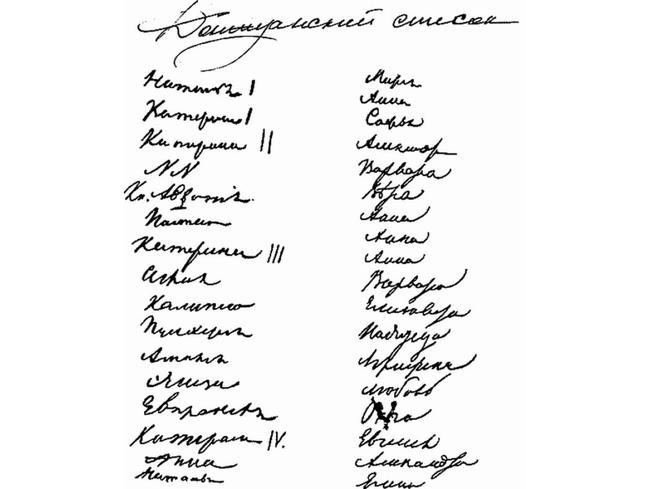 Донжуанский список
Наталья I
Катерина I
Катерина II
NN
Кн. Авдотия
Настасья
Катерина III
Аглая
Калипсо
Пулхерия
Амалия
Элиза
Евпраксея
Катерина IV.
Анна
Наталья
Мария
Анна
Софья
Александра
Варвара
Вера
Анна
Анна
Анна
Варвара
Елизавета
Надежда
Аграфена
Любовь
Ольга
Евгения
Александра
Елена